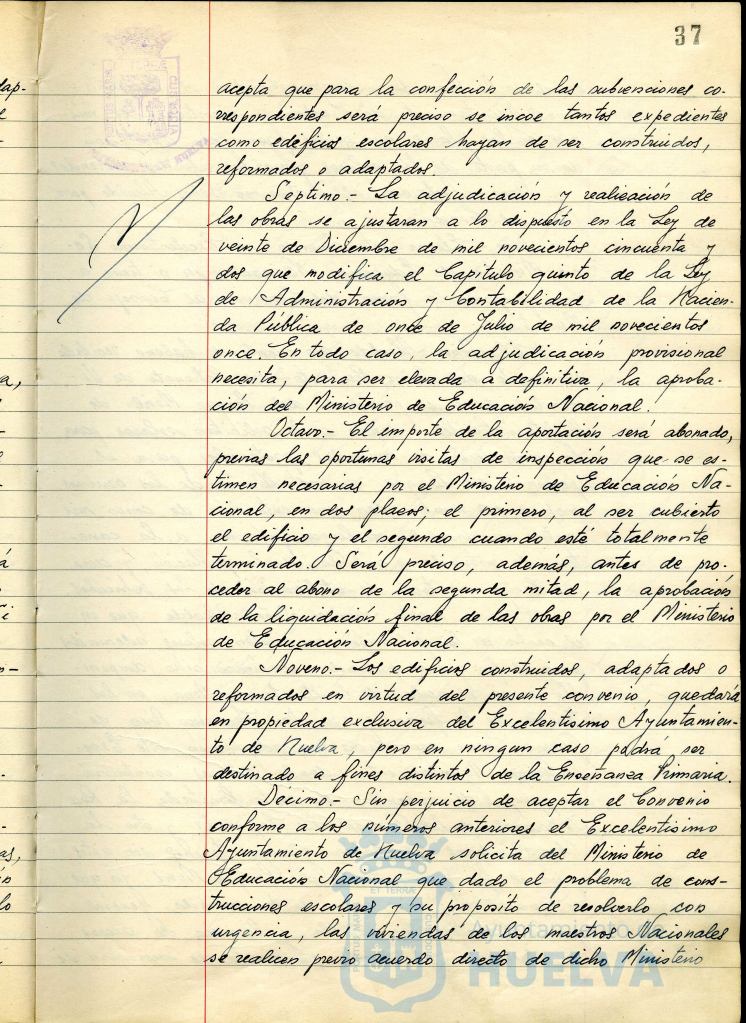 37
acepta que para la confección de las subvenciones co-
rrespondientes será preciso se incoe tantos expedientes
como edificios escolares hayan de ser construidos,
reformados o adaptados.
Septimo.- La adjudicación y realización de
las obras se ajustaran a lo dispuesto en la Ley de
veinte de Diciembre de mil novecientos cincuenta y
dos que modifica el Capitulo quinto de la Ley
de Administración y Contabilidad de la Hacien-
da Pública de once de Julio de mil novecientos
once. En todo caso, la adjudicación provisional
necesita, para ser elevada a definitiva, la aproba-
ción del Ministerio de Educación Nacional.
Octavo.- El importe de la aportación será abonado,
previas las oportunas visitas de inspección que se es-
timen necesarias por el Ministerio de Educación Na-
cional, en dos plazos; el primero, al ser cubierto
el edificio y el segundo cuando esté totalmente
terminado. Será preciso, además, antes de pro-
ceder al abono de la segunda mitad, la aprobación
de la liquidación final de las obras por el Ministerio
de Educación Nacional.
Noveno.- Los edificios construidos, adaptados o
reformados en virtud del presente convenio, quedará
en propiedad exclusiva del Excelentisimo Ayuntamien-
to de Huelva, pero en ningun caso podrá ser
destinado a fines distintos de la Enseñanza Primaria.
Décimo.- Sin perjuicio de aceptar el Convenio
conforme a los números anteriores el Excelentisimo
Ayuntamiento de Huelva solicita del Ministerio de
Educación Nacional que dado el problema de cons-
trucciones escolares y su proposito de resolverlo con
urgencia, las viviendas de los maestros Nacionales
se realicen previo acuerdo directo de dicho Ministerio
HUELVA